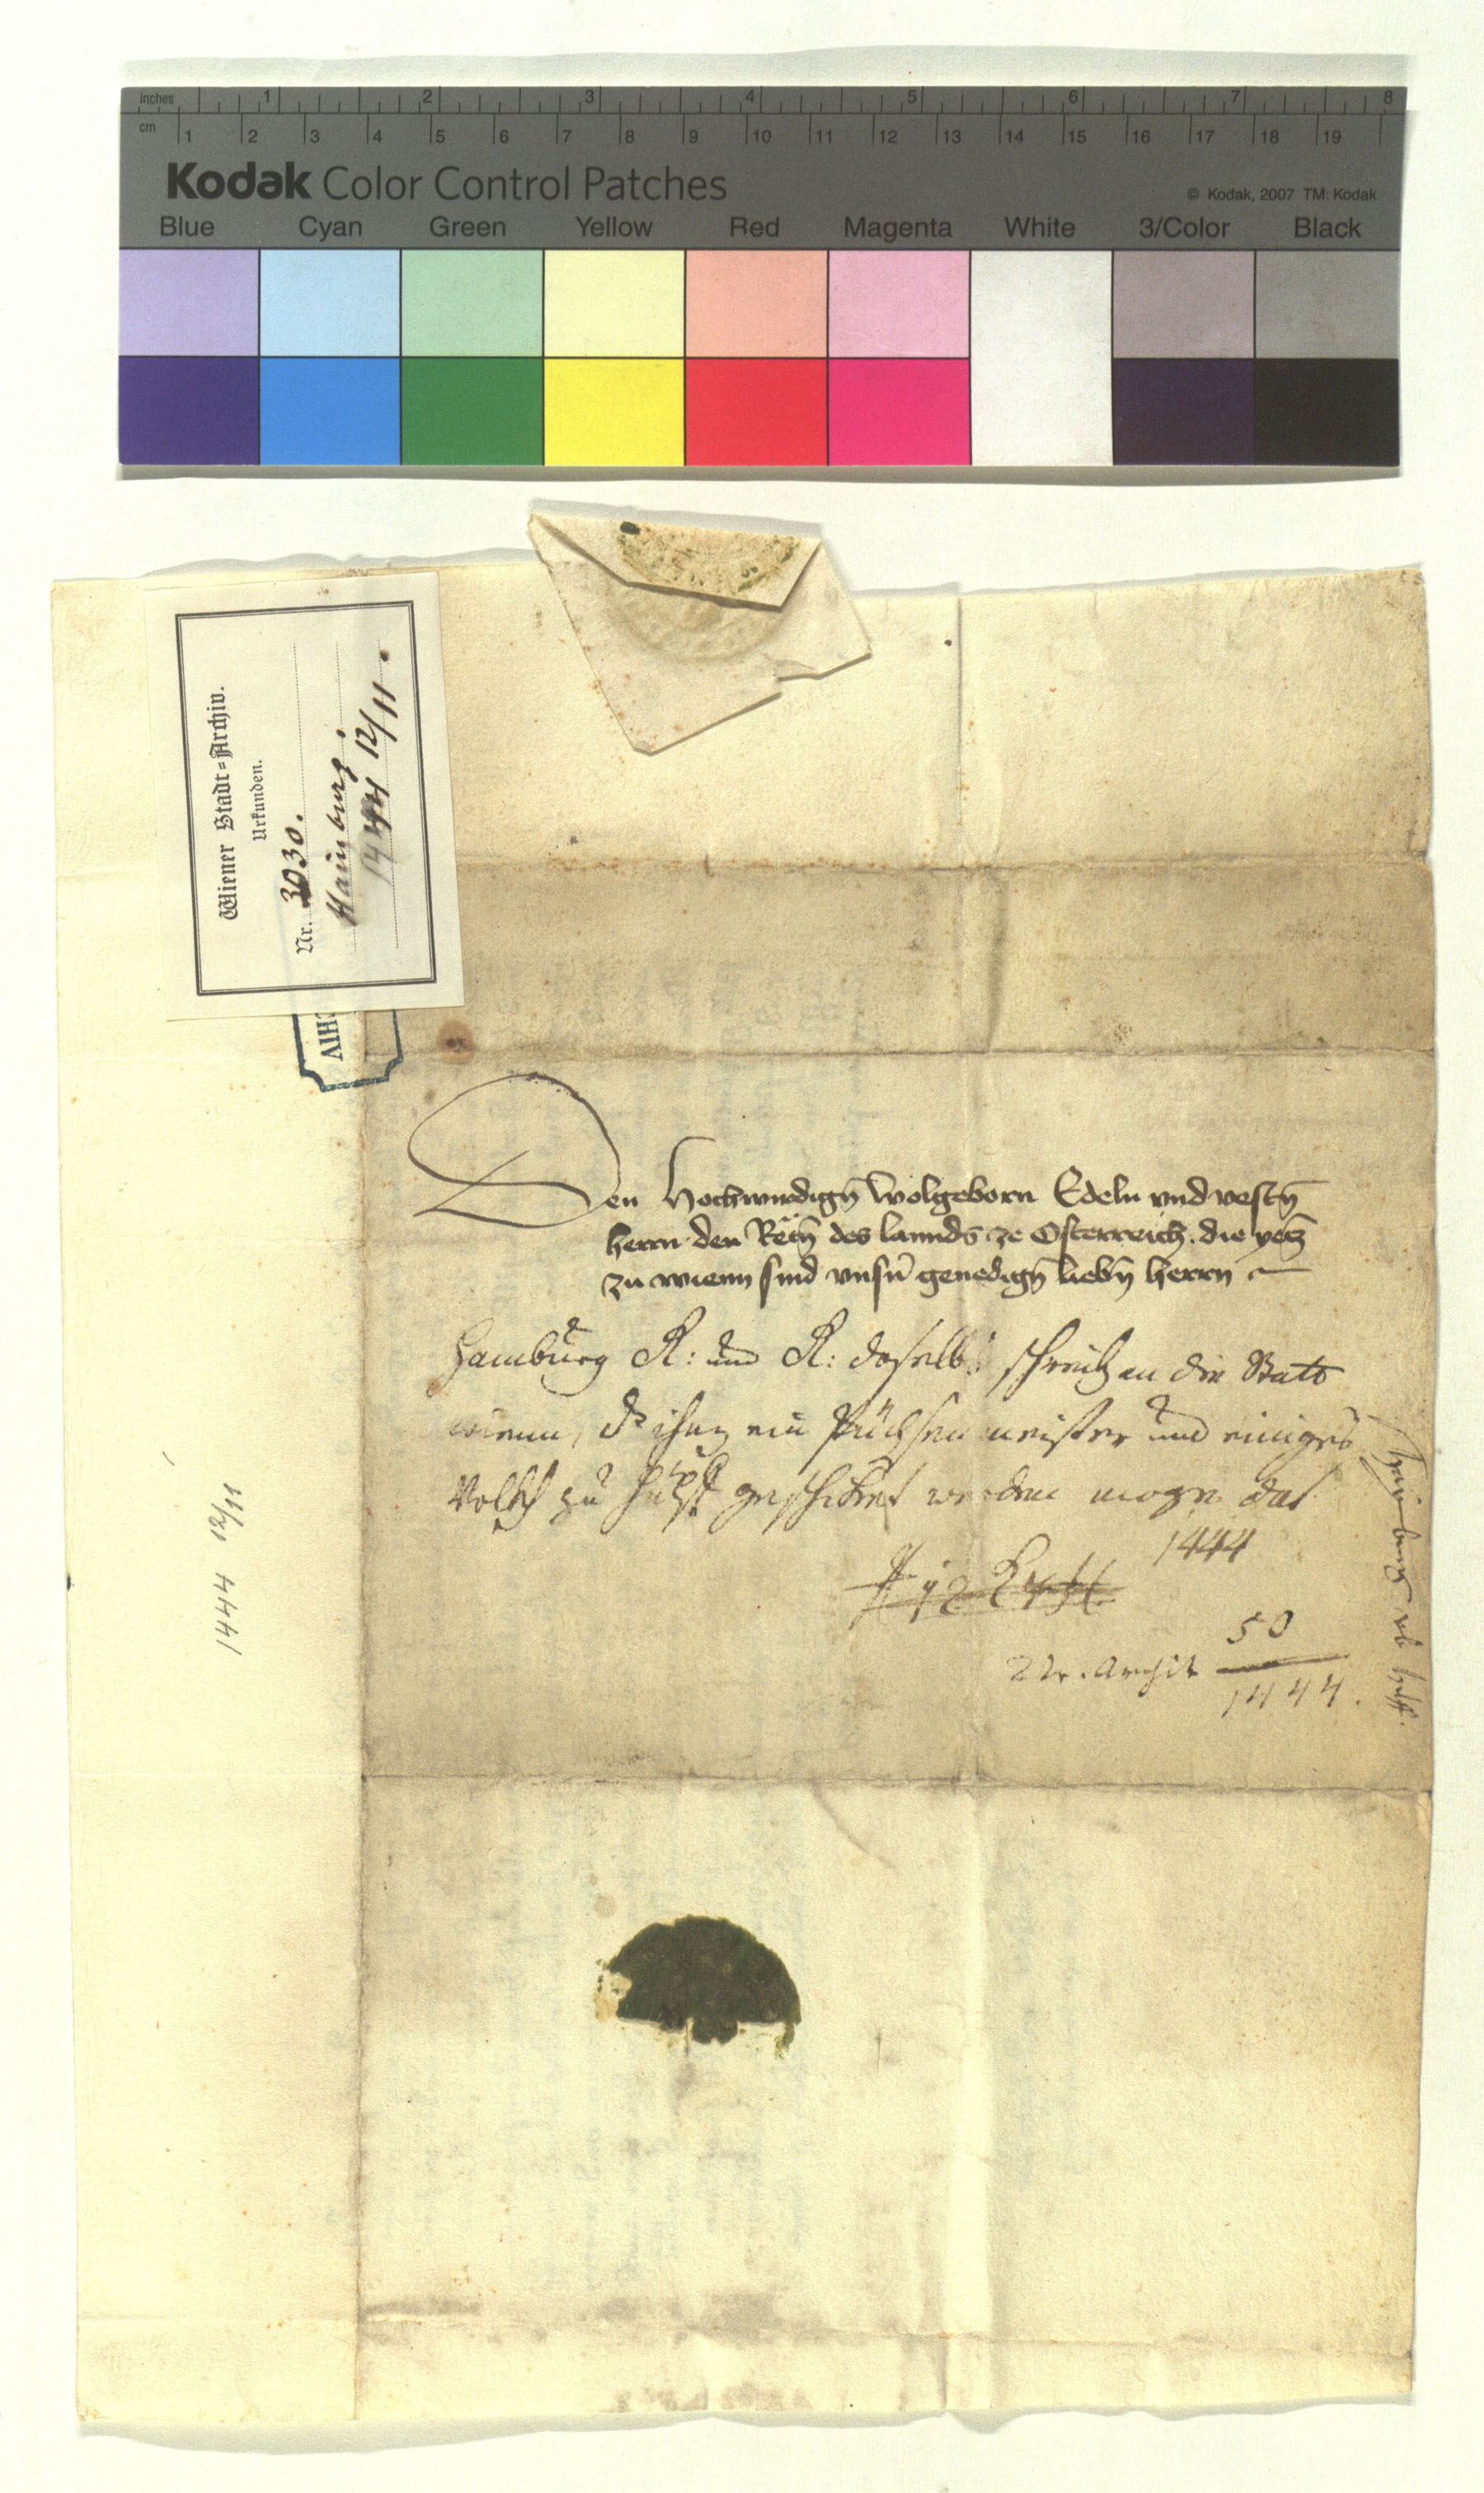 inches 1 2 3 4 5 6 7 8
cm 1 2 3 4 5 6 7 8 9 10 11 12 13 14 15 16 17 18 19
Kodak Color Control Patches
© Kodak, 2007 TM: Kodak
Blue Cyan Green Yellow Red Magenta White 3/Color Black
Wiener Stadt=Archiv.
Urkunden.
Nr. 3030.
Hainburg.
1444 12/11.
CHIV
Den hochwirdign̄ wolgeborn Edeln vnd vestn̄
herrn den Retn̄ des lannds ze Osterreich. die yetz
zu wienn sind vnsn̄ genedign̄ liebn̄ herrn
Hamburg R: und R: daselbs schreiben die Statt
wienn, ein Püchsenmeister und einiges
Volkh zu hülff geschicket werden moge dat
1444
50
1444.
1444 12/11